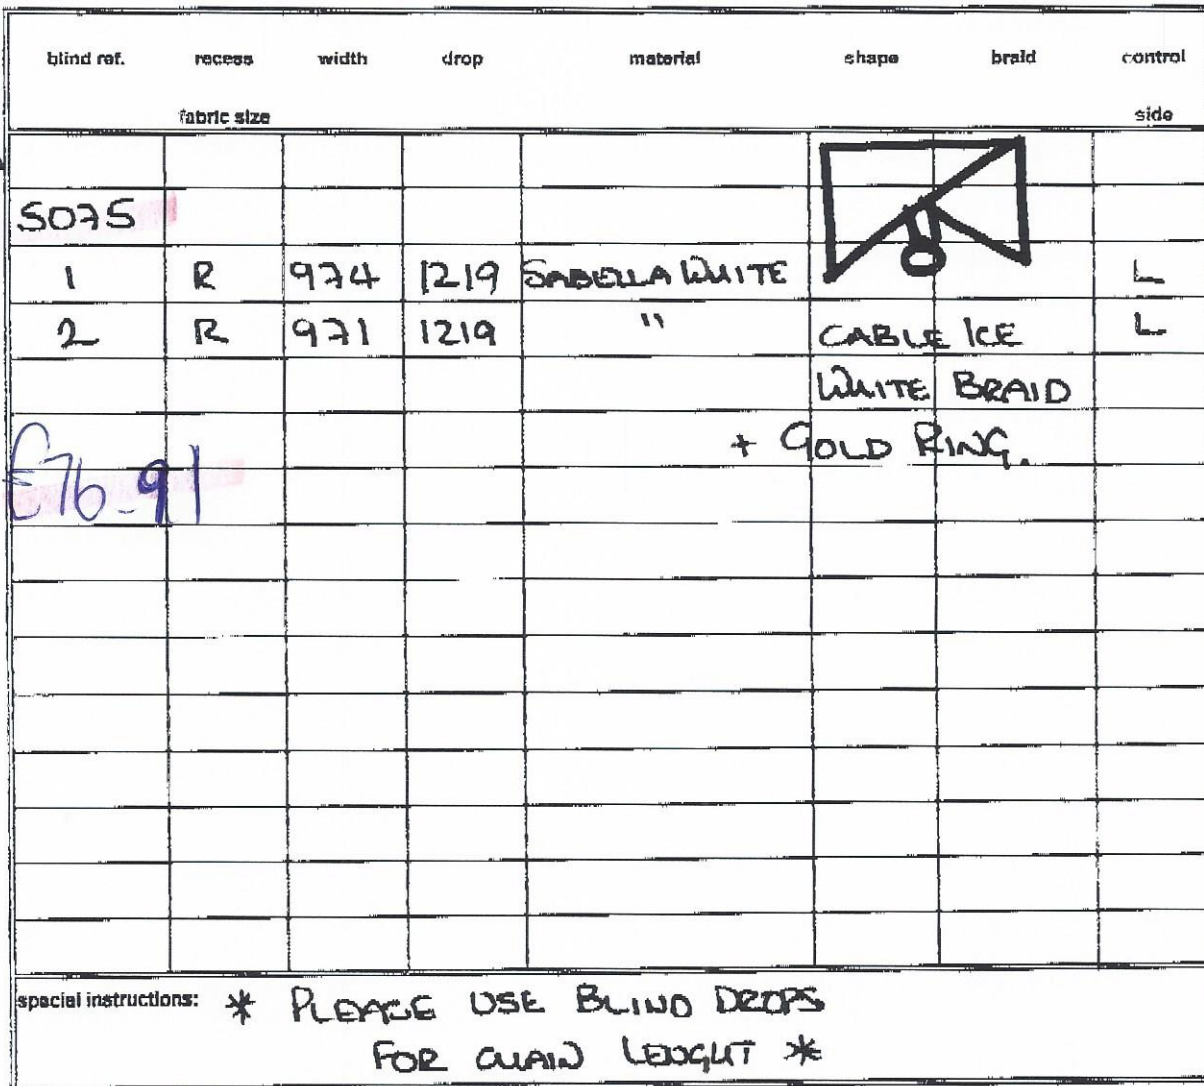 blind ref. recess width drop material shape braid control
fabric size side
5075
1 R 974 1219 SABELLA WHITE L
2 R 971 1219 " CABLE ICE L
WHITE BRAID
+ GOLD RING.
£76-91
special instructions: * PLEASE USE BLIND DROPS
FOR CHAIN LENGHT *